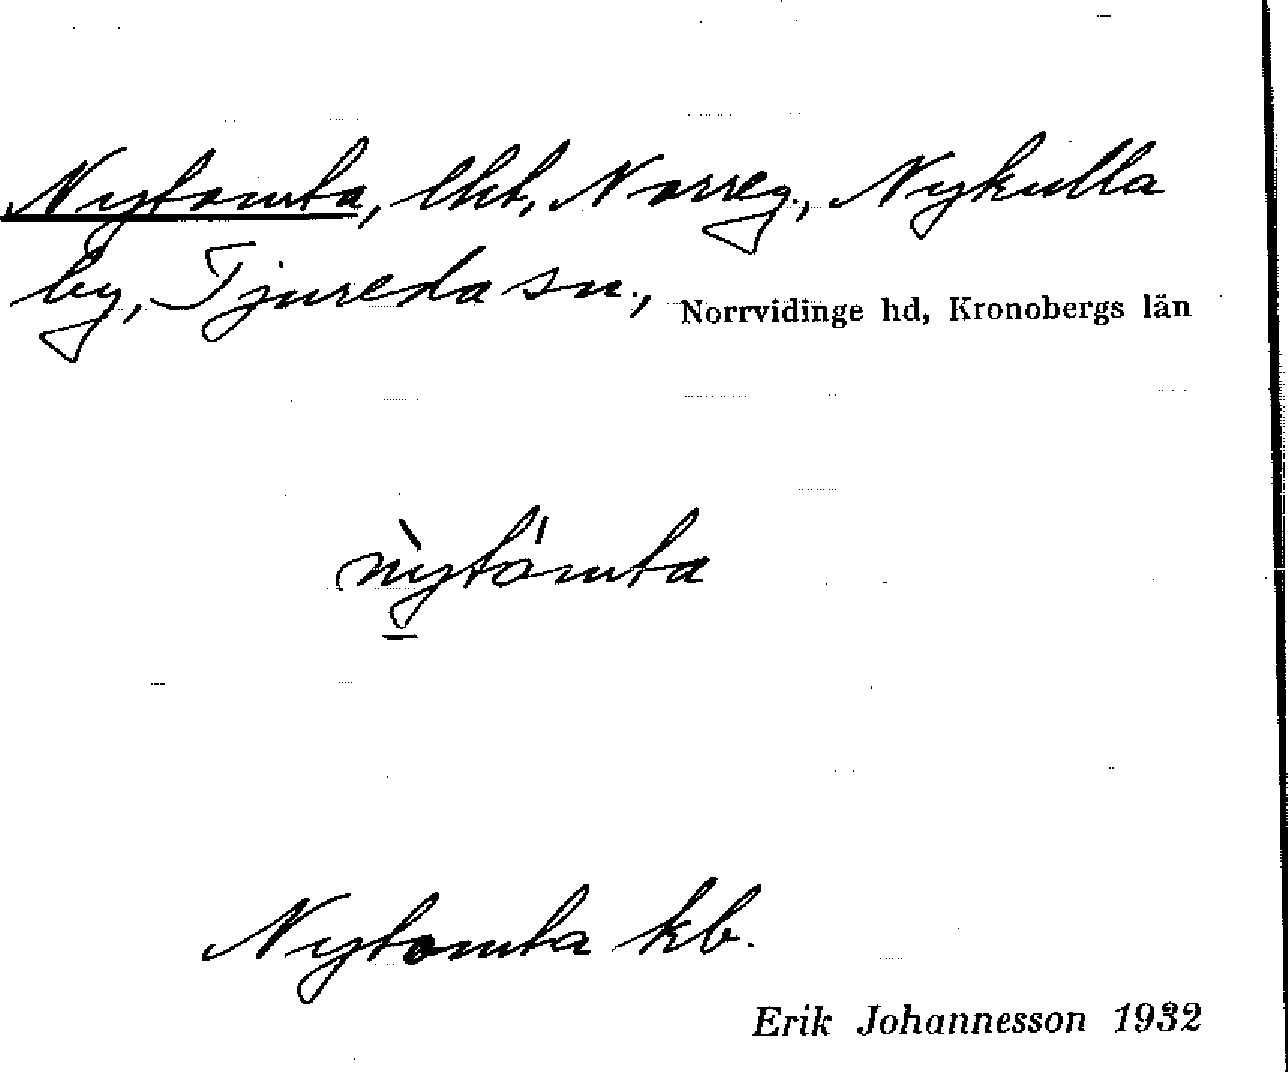 Nytomta, lht, Norreg., Nykulla
by, Tjureda sn., Norrvidinge hd, Kronobergs län
nỳtómta
Nytomta kb.
Erik Johannesson 1932